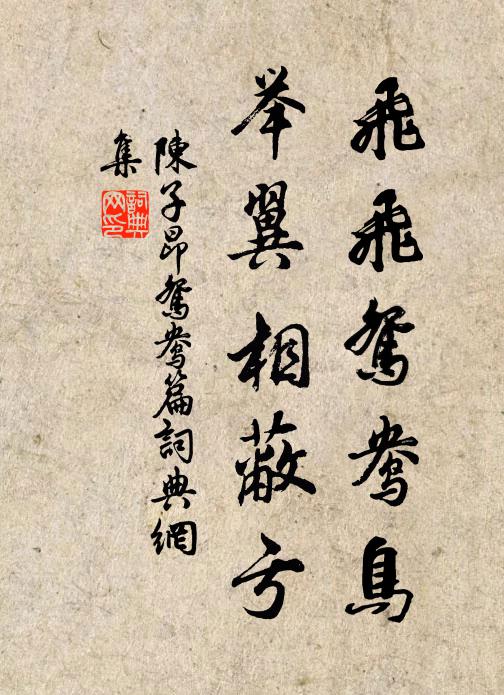 飛飛鴛鴦鳥
举翼相蔽亏
陳子昂鴛鴦篇詞典網
集
詞典
网印